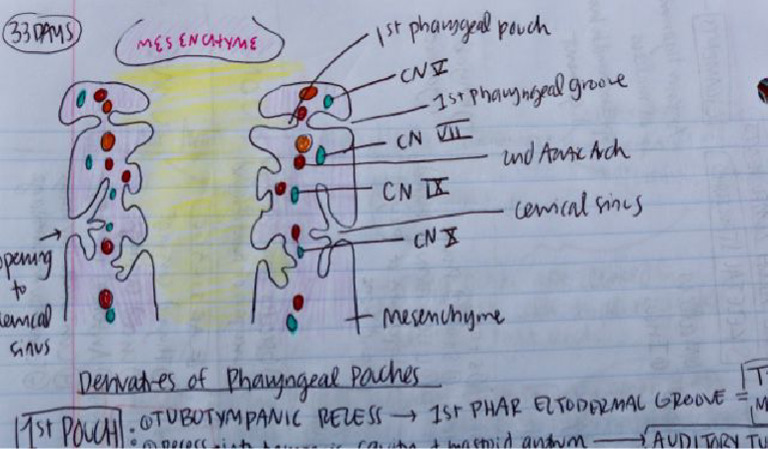 33 DAYS
MESENCHYME
1st pharyngeal pouch
CN V
1st Pharyngeal groove
CN VII
2nd Aortic Arch
CN IX
cervical sinus
CN X
opening
to
cervical
sinus
Mesenchyme
Derivatives of Pharyngeal Pouches
1st POUCH : ① TUBOTYMPANIC RECESS → 1st PHAR ECTODERMAL GROOVE =
② mastoid antrum → AUDITARY TU